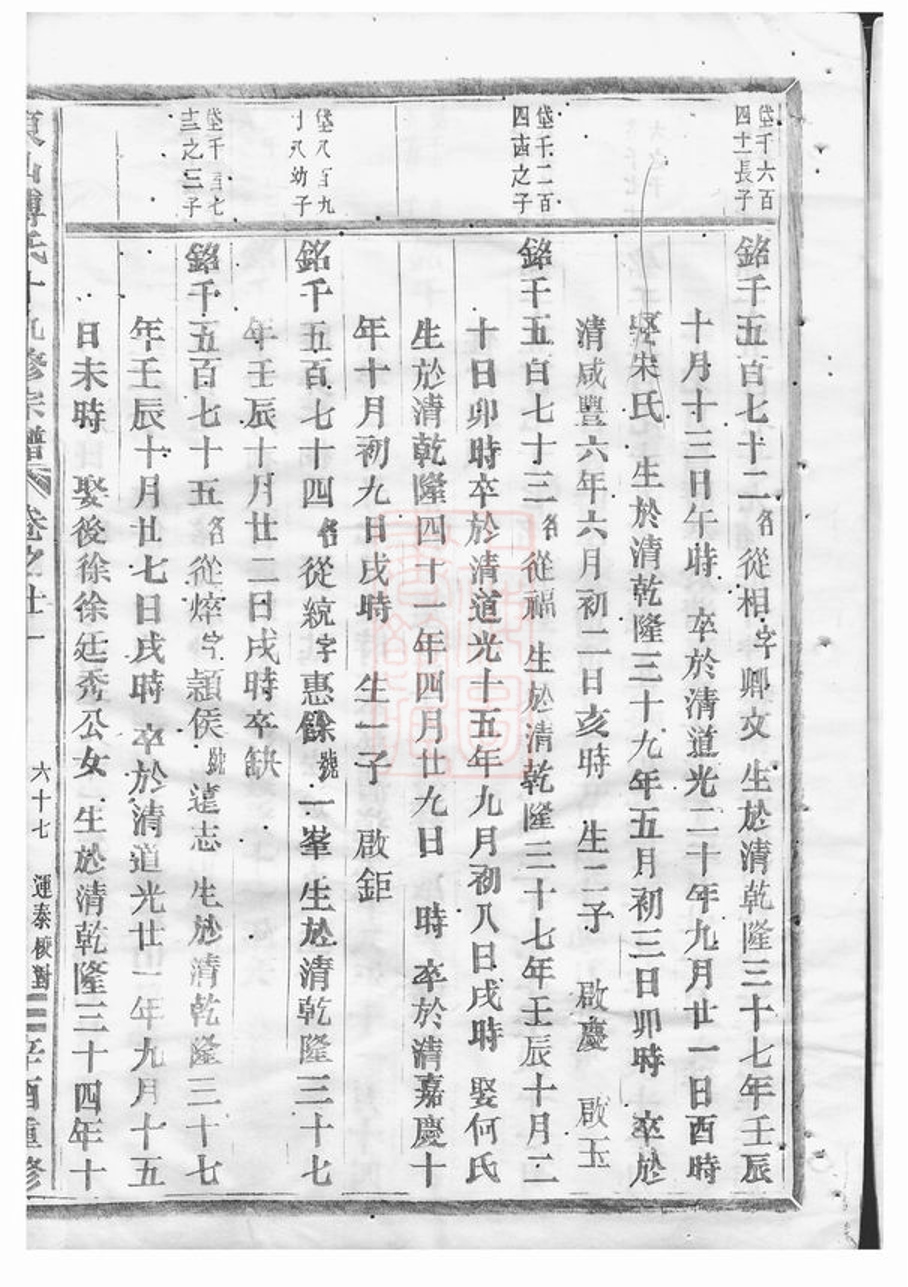 垈千六百
四十一長子
銘千五百七十二名從相字卿文 生於清乾隆三十七年壬辰
十月十三日午時 卒於清道光二十年九月廿一日酉時
娶宋氏 生於清乾隆三十九年五月初三日卯時 卒於
清咸豐六年六月初二日亥時 生二子 啟慶 啟玉
垈千二百
四十四之子
銘千五百七十三名從福 生於清乾隆三十七年壬辰十月二
十日卯時卒於清道光十五年九月初八日戌時 娶何氏
生於清乾隆四十一年四月廿九日 時 卒於清嘉慶十
年十月初九日戌時 生一子 啟鉅
垈八百九
十八幼子
銘千五百七十四名從統字惠餘號一峯 生於清乾隆三十七
年壬辰十月廿二日戌時卒缺
垈千一百七
十三之三子
銘千五百七十五名從焠字頴侯號遠志 生於清乾隆三十七
年壬辰十月廿七日戌時 卒於清道光廿一年九月十五
日未時 娶後徐徐廷秀公女 生於清乾隆三十四年十
東山傅氏十九修宗譜 卷之廿一
六十七 運泰校對
辛酉重修